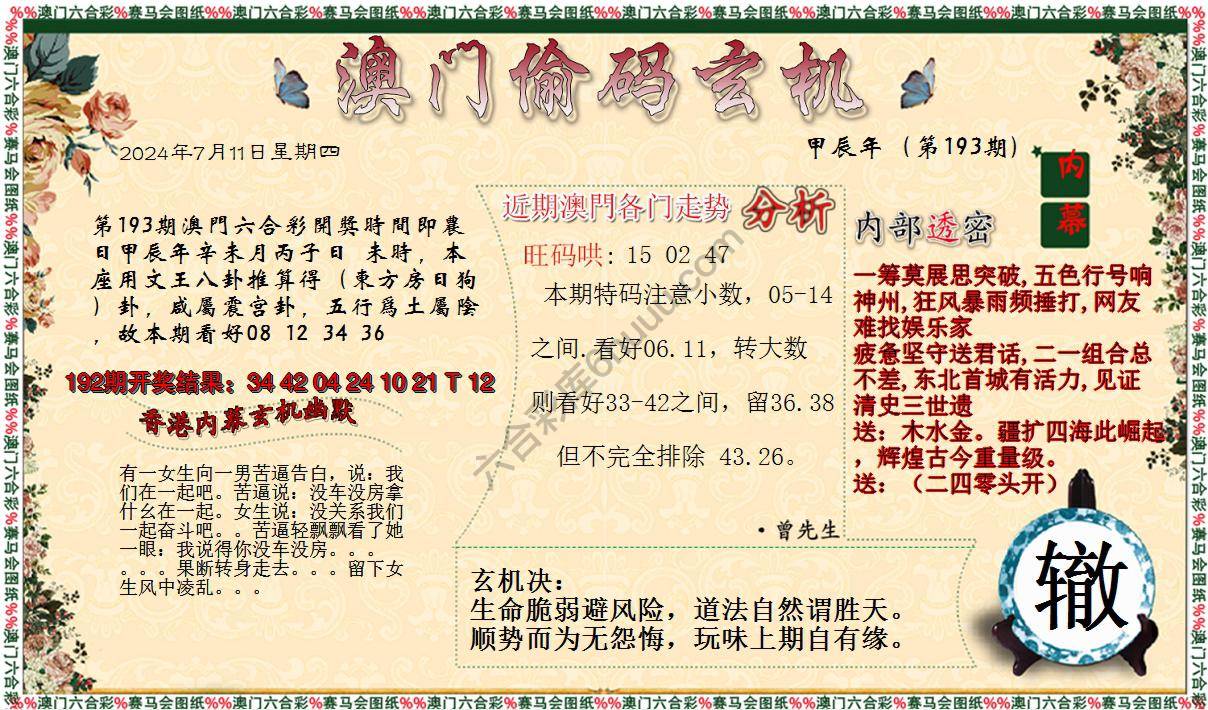 %%澳门六合彩%赛马会图纸%%澳门六合彩%赛马会图纸%%澳门六合彩%赛马会图纸%%澳门六合彩%赛马会图纸%%澳门六合彩%赛马会图纸%%澳门六合彩%赛马会图纸%%
澳门偷码玄机
2024年7月11日星期四
甲辰年（第193期）
内幕
第193期澳門六合彩開獎時間即農
日甲辰年辛未月丙子日 未時，本
座用文王八卦推算得（東方房日狗
）卦，咸屬震宫卦，五行爲土屬陰
，故本期看好08 12 34 36
192期开奖结果：34 42 04 24 10 21 T 12
香港内幕玄机幽默
有一女生向一男苦逼告白，说：我
们在一起吧。苦逼说：没车没房拿
什么在一起。女生说：没关系我们
一起奋斗吧。。苦逼轻飘飘看了她
一眼：我说得你没车没房。。。
。。。果断转身走去。。。留下女
生风中凌乱。。。
近期澳門各门走势 分析
旺码哄: 15 02 47
本期特码注意小数，05-14
之间.看好06.11，转大数
则看好33-42之间，留36.38
但不完全排除 43.26。
·曾先生
内部透密
一筹莫展思突破,五色行号响
神州,狂风暴雨频捶打,网友
难找娱乐家
疲惫坚守送君话,二一组合总
不差,东北首城有活力,见证
清史三世遗
送：木水金。疆扩四海此崛起
，辉煌古今重量级。
送：（二四零头开）
玄机决：
生命脆弱避风险，道法自然谓胜天。
顺势而为无怨悔，玩味上期自有缘。
辙